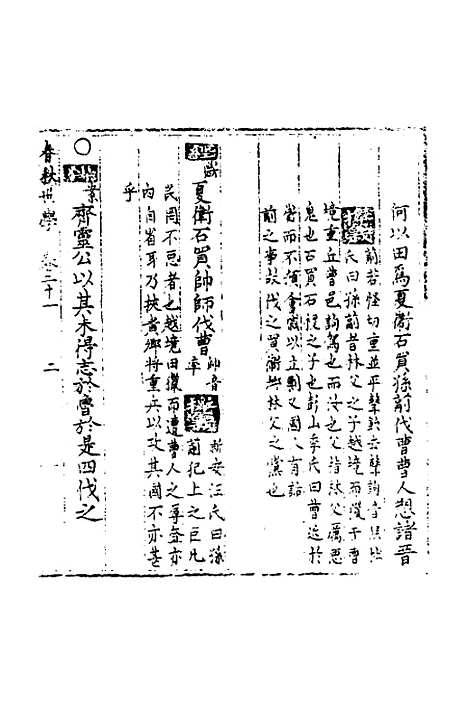 何以田爲夏衛石買孫蒯伐曹曹人愬諸晉
蒯若怪切重並平聲飲去聲詢音
氏曰孫蒯昔林父之子越境而獵于曹
境重丘曹邑詢罵也而汝也父指林父厲惡
鬼也石買石稷之子也彭山季氏曰曹近於
衛而不預會戚以立剽又國人有詬
前之事故伐之買衛與林父之黨也
經 夏衛石買帥師伐曹 帥音率
新安汪氏曰孫
蒯犯上之臣凡
民罔不惡者也越境田獵而遭曹人之辱盍亦
内自省耳乃挾貴卿將重兵以攻其國不亦甚
乎
齊靈公以其未得志於魯於是四伐之
春秋世學 卷二十一 二